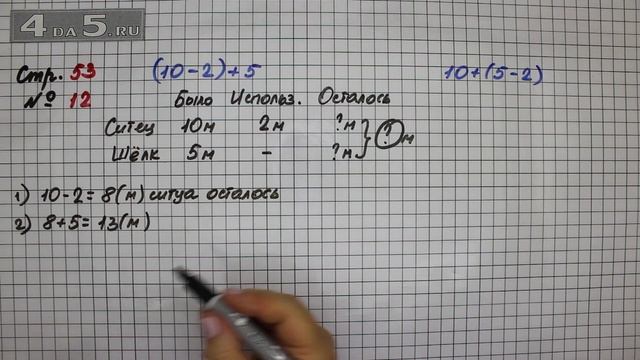 4 ДА 5.RU
Стр. 53 (10-2)+5 10+(5-2)
№ 12 Было Использ. Осталось
Ситец 10м 2м ?м
Шёлк 5м - ?м } ? м
1) 10-2=8(м) ситца осталось
2) 8+5=13(м)